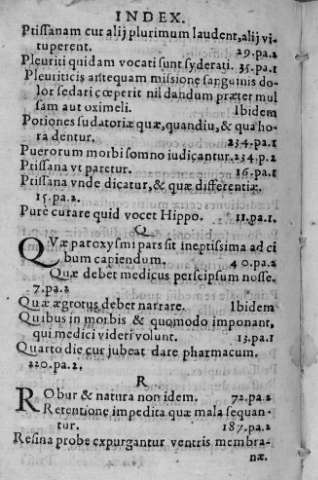 INDEX.
Ptissanam cur alij plurimum laudent, alij vi-
tuperent. 29.pa.2
Pleuriti quidam vocati sunt syderati. 35.pa.1
Pleuriticis antequam missione sanguinis do-
lor sedari cœperit nil dandum præter mul
sam aut oximeli. Ibidem
Potiones sudatoriæ quæ, quandiu, & qua ho-
ra dentur. 234.pa.1
Puerorum morbi somno iudicantur. 234.p.2
Ptissana vt paretur. 16.pa.1
Ptissana vnde dicatur, & quæ differentiæ.
15.pa.2.
Pure curare quid vocet Hippo. 11.pa.1.
Q
QVæ paroxysmi pars sit ineptissima ad ci
bum capiendum. 40.pa.2
Quæ debet medicus perseipsum nosse.
7.pa.2
Quæ ægrotus debet narrare. Ibidem
Quibus in morbis & quomodo imponant,
qui medici videri volunt. 13.pa.1
Quarto die cur jubeat dare pharmacum.
220.pa.2.
R
RObur & natura non idem. 72.pa.2
Retentione impedita quæ mala sequan-
tur. 187.pa.2
Resina probe expurgantur ventris membra-
næ.